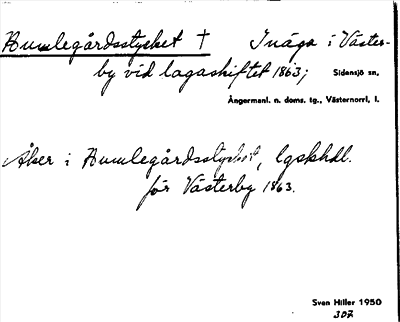 Humlegårdsstycket † Inäga i Väster-
by vid lagaskiftet 1863; Sidensjö sn,
Ångermanl. n. doms. tg., Västernorrl, l.
Åker i Humlegårdsstycket, lgskhdl.
för Västerby 1863.
Sven Hiller 1950
307